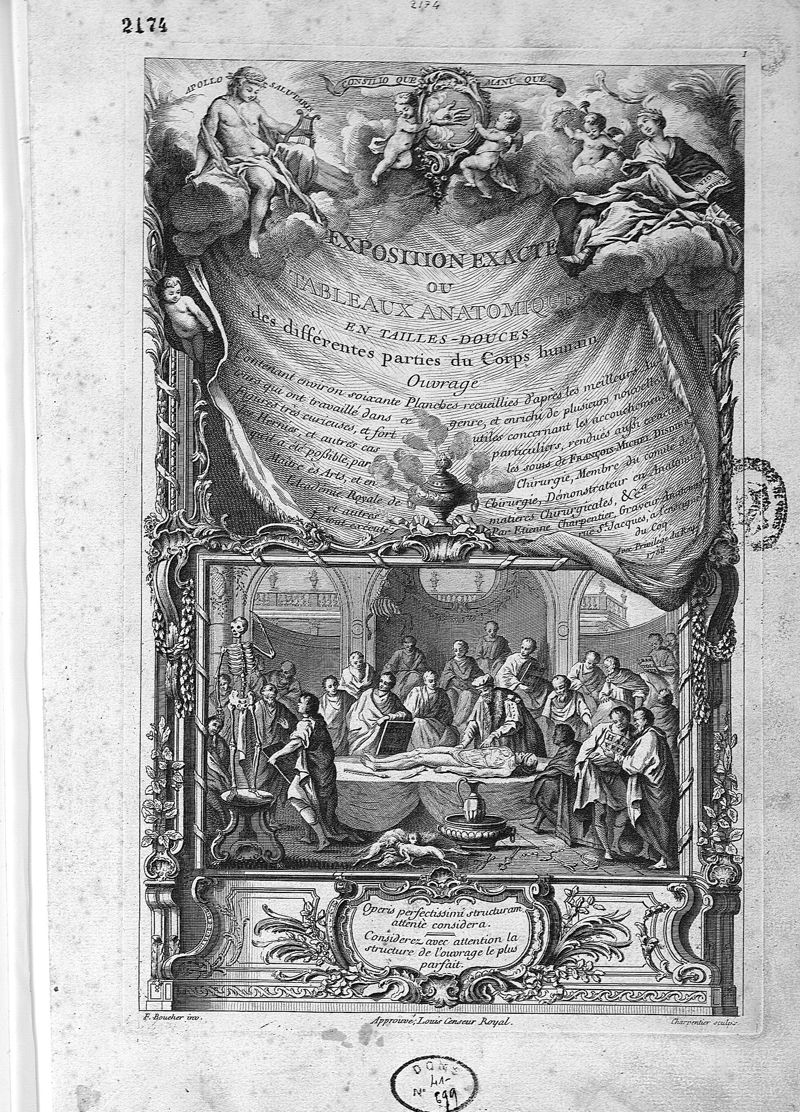 2174
2174
1
APOLLO SALUTARIS
CONSILIO QUE MANU QUE
EXPOSITION EXACTE
OU
TABLEAUX ANATOMIQUES
EN TAILLES-DOUCES
des différentes parties du Corps humain
Ouvrage
Contenant environ soixante Planches recueillies d'après les meilleurs Au
teurs qui ont travaillé dans ce genre, et enrichi de plusieurs nouvelles
Figures très curieuses, et fort utiles concernant les accouchemens
les Hernies, et autres cas particuliers, rendues aussi
qu'il a été possible, par les soins de FRANÇOIS-MICHEL DISDIER
Maître ès Arts, et en Chirurgie, Membre du comité de
l'Acad̃émie Royale de Chirurgie, Démonstrateur en Anatomie
et autres matieres Chirurgicales, &c.ª
Le tout exécuté Par Etienne Charpentier, Graveur
rue S.ᵗ Jacques, à l'enseigne
du Coq
Avec Privilege du Roy
1758
Operis perfectissimi structuram
attentè considera.
Considerez avec attention la
structure de l'ouvrage le plus
parfait.
F. Boucher inv.
Approuvé, Louis Censeur Royal.
Charpentier sculps.
DONS
N° 41-
899